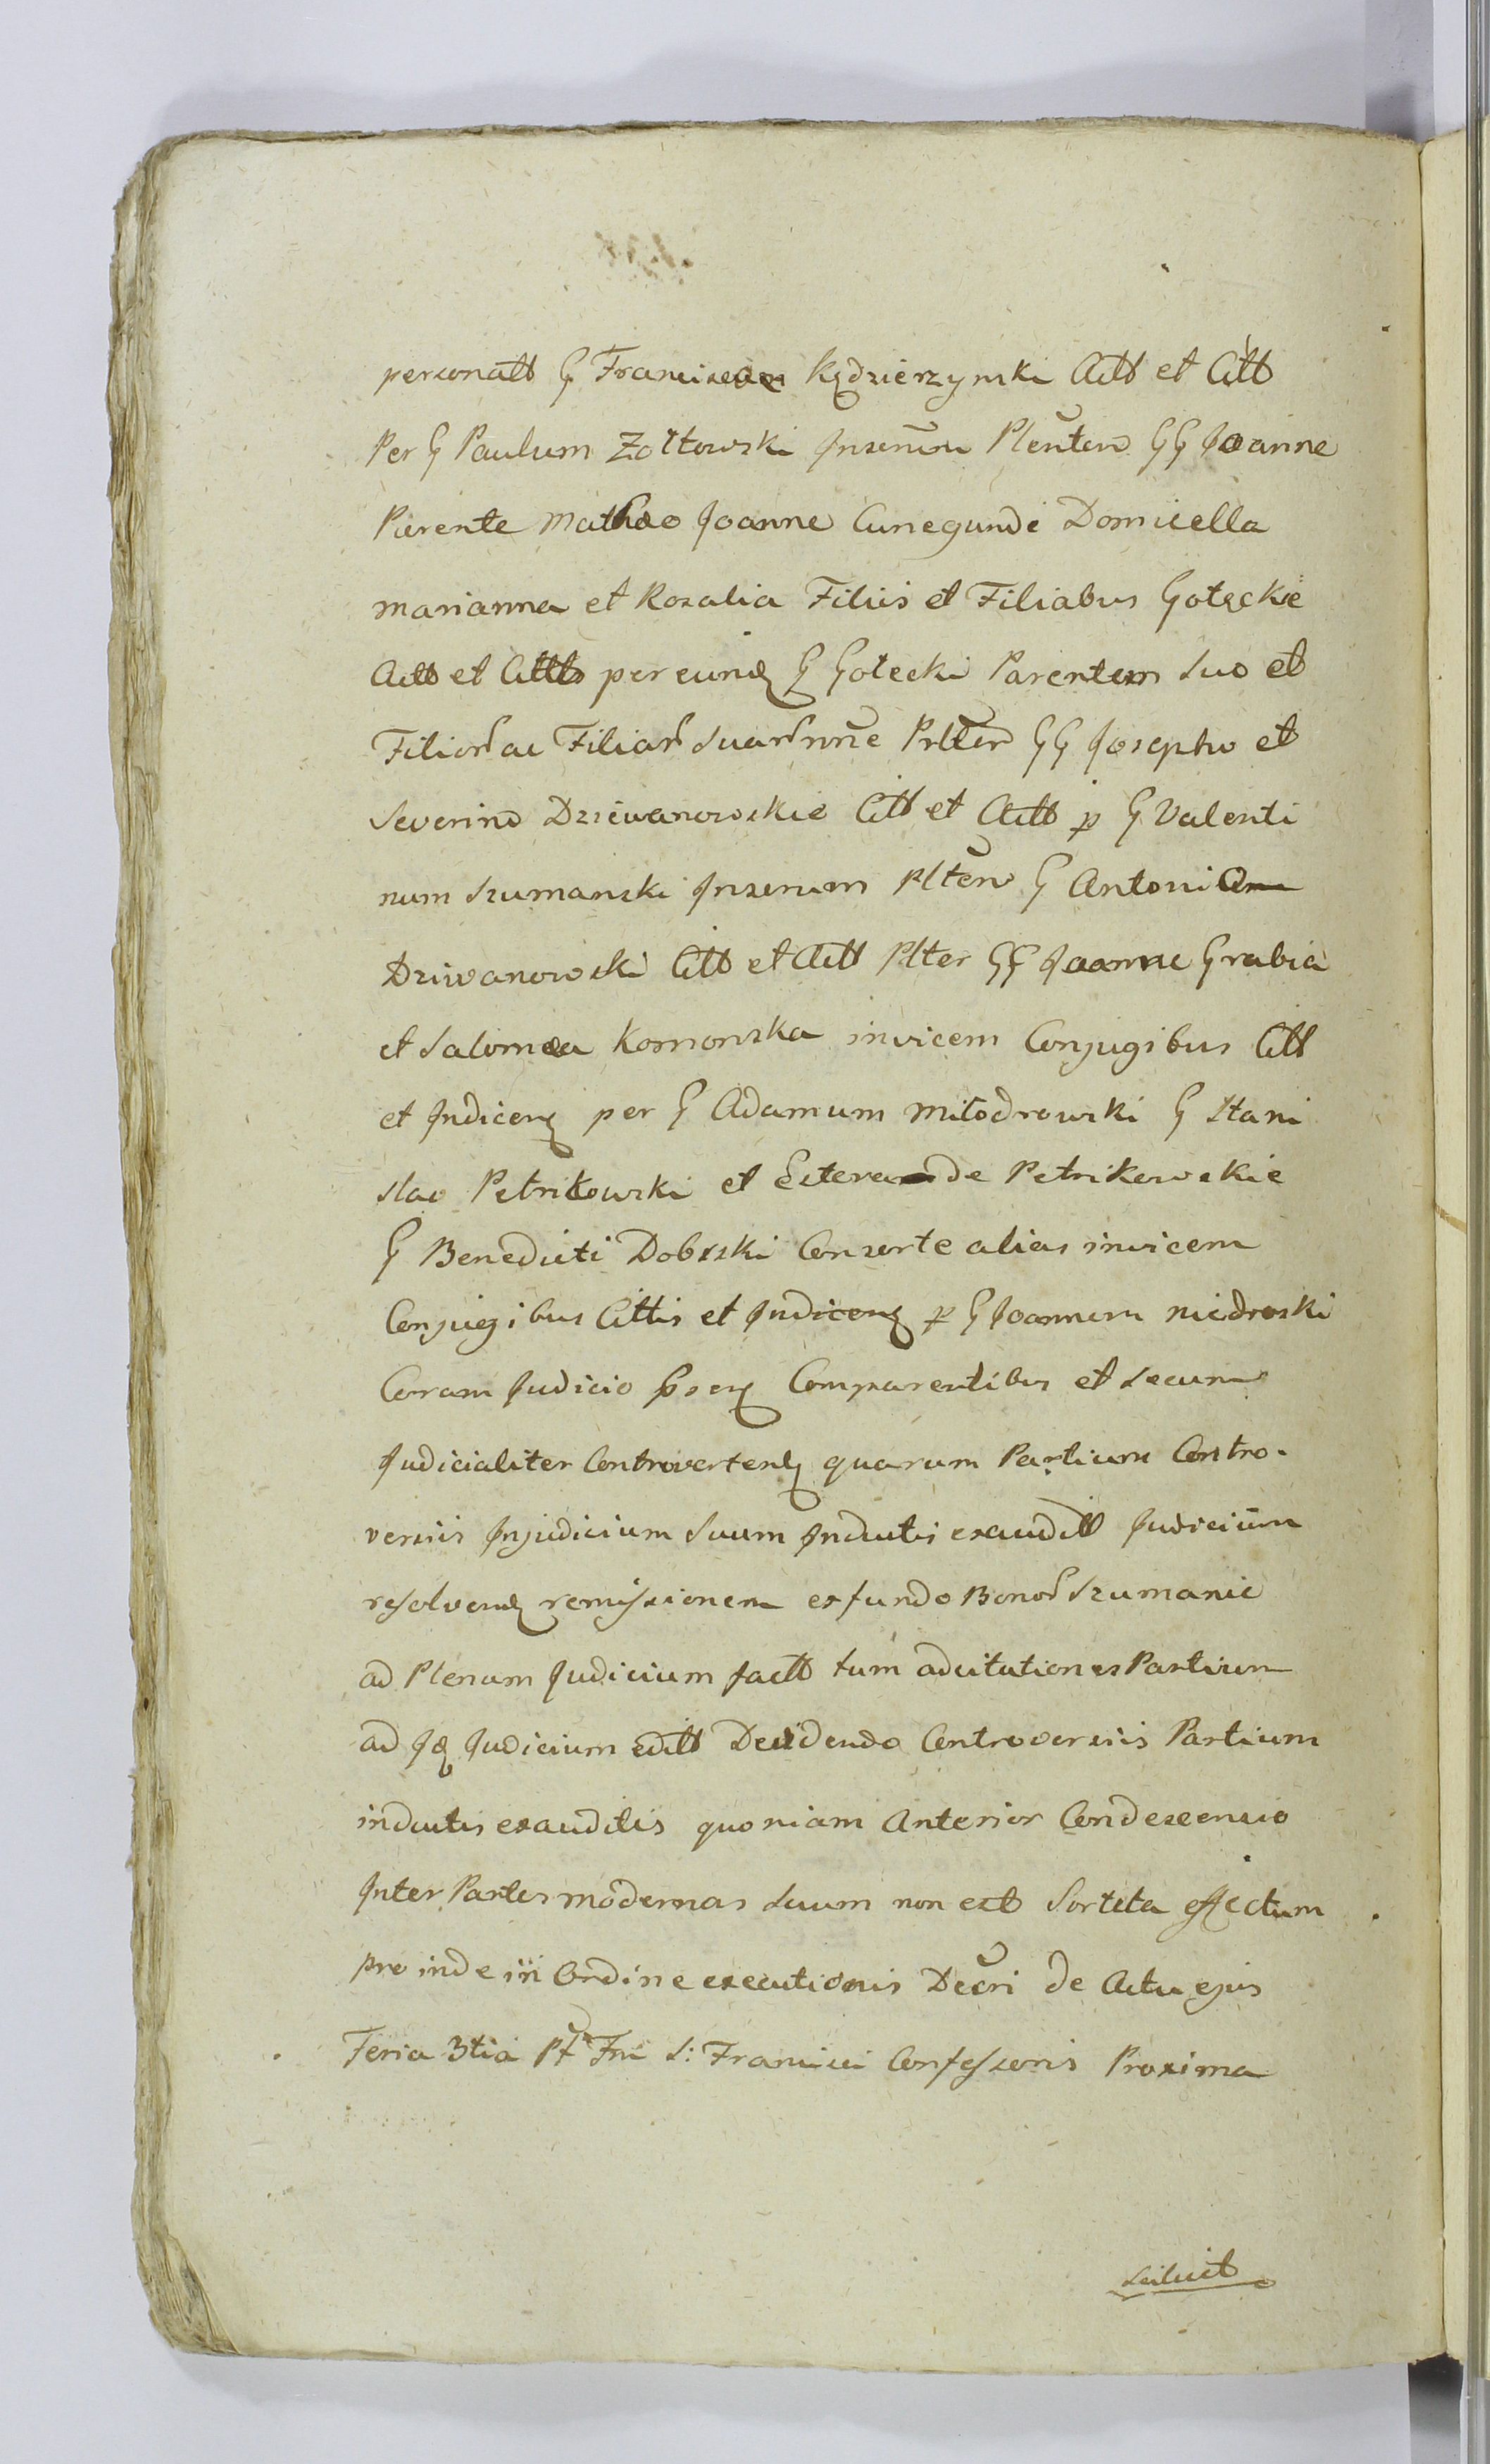 personatt G Franciscum Kędzierzynski Actt et Citt
Per G Paulum Zołtowski Inserūm Plenten GG Joanne
Parente Mathæo Joanne Cunegunde Domicella
Marianna et Rosalia Filiis et Filiabus Gotęckie
Actt et Cittt per eund G Gotecki Parentem Suo et
Filior ac Filiar Suar nne Prltter GG Josepho et
Severino Dziewanowskie Citt et Actt p G Valenti
num Szumanski Inserum Plten G Antoni
Dziwanowski Citt et Actt Plter GG Joanne Grabia
et Salomea Komorska invicem Conjugibus Citt
et Indicen per G Adamum Miłodrowski G Stani
slao Petrikowski et de Petrikowskie
G Benedicti Dobrski Consorte alias invicem
Conjugibus Cittis et Indicen p G Joannem Niedroski
Coram Judicio Comparentibus et Secum
Judicialiter Controverten quarum Partium Contro-
versiis Injudicium Suum Inductis exauditt Judiciūm
resolvend remissionem exfundo Bonor Szumanie
ad Plenum Judicium factt tum adcitationes Partium
ad Id Judicium editt Decidendo Controversiis Partium
inductis exauditis quoniam Anterior Condescensio
Inter Partes modernas Suum non est Sortita effectum
pro inde in Ordine executionis Decri de Actu ejus
Feria 3tia Pt Fm S: Francisci Confessoris Proxima
Scilicet